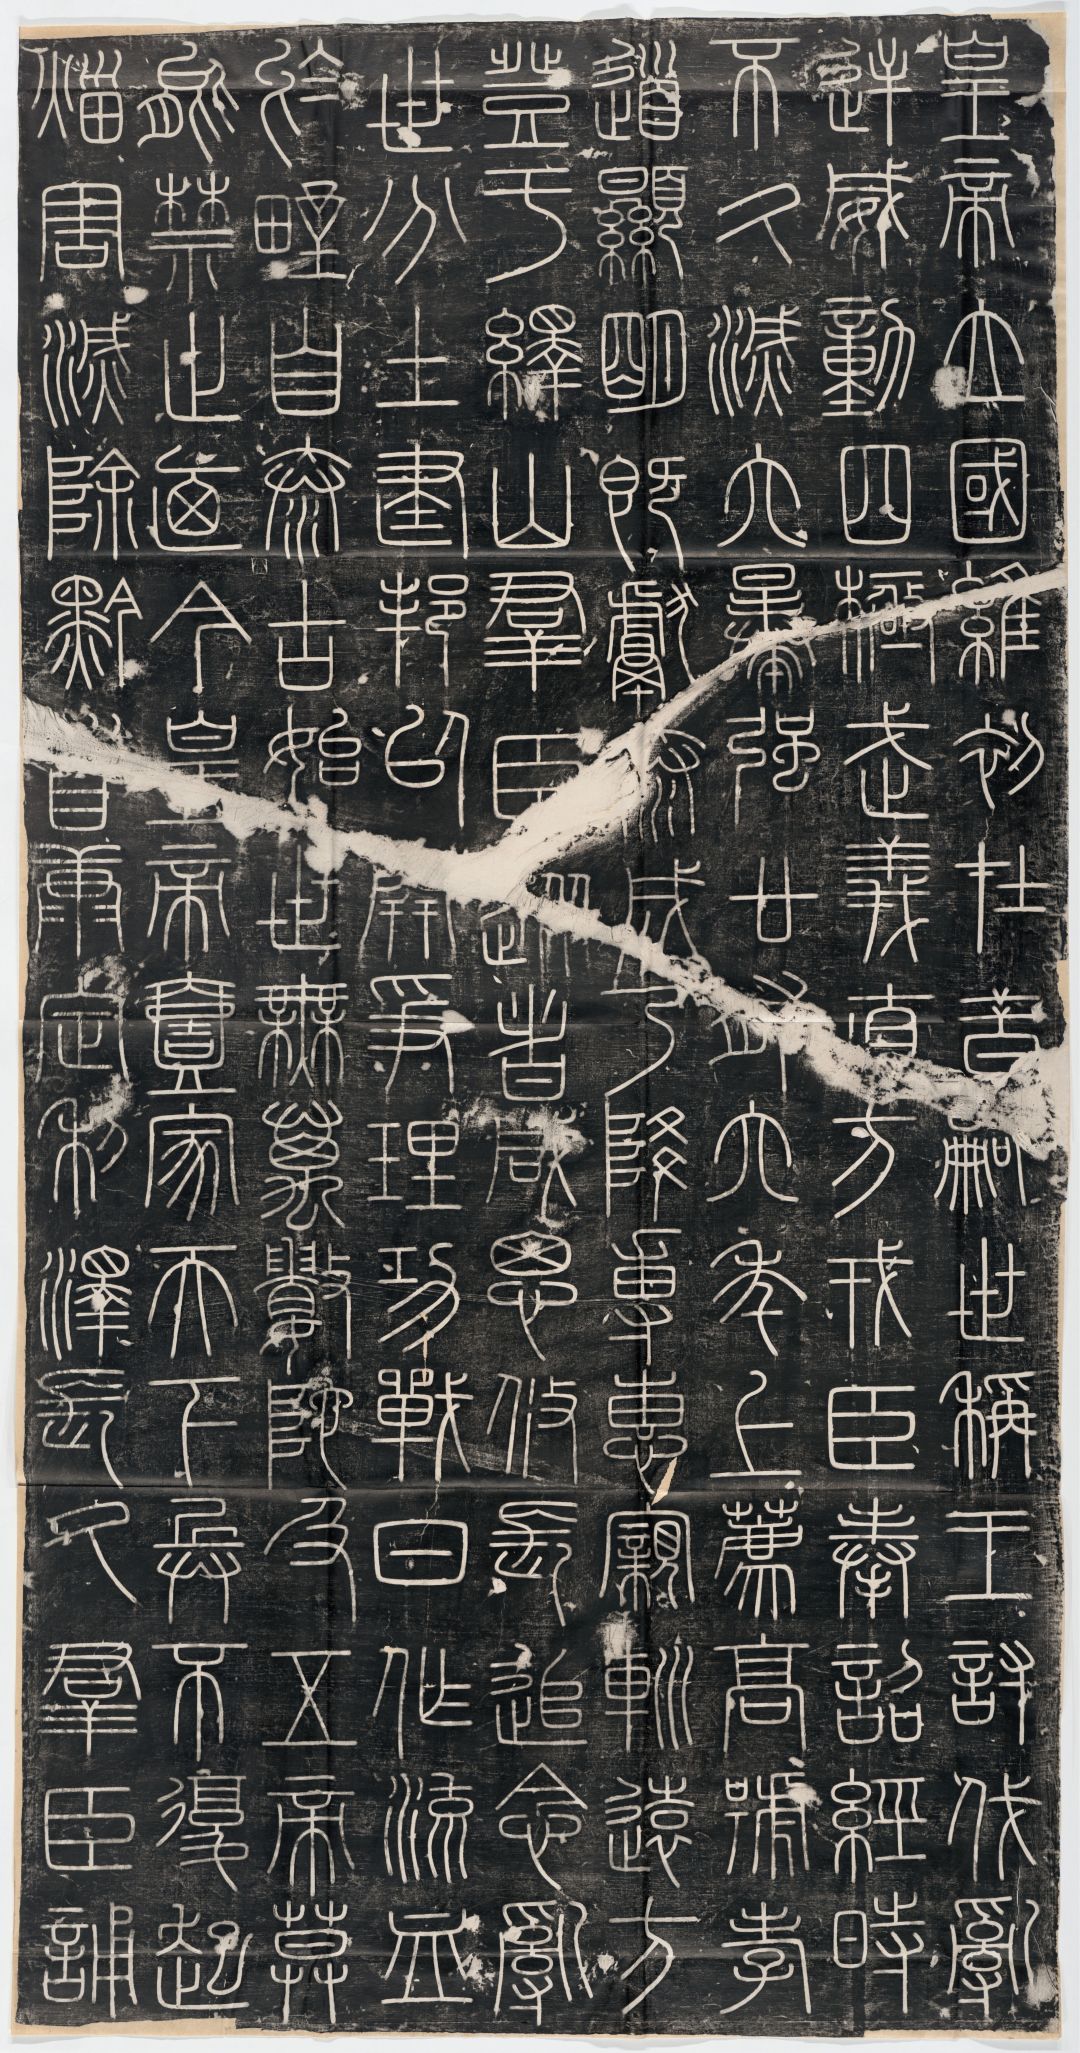 皇帝立國維初在昔嗣世稱王討伐亂
逆威動四極武義直方戎臣奉詔經時
不久滅六暴強廿有六年上薦高號孝
道顯明既獻泰成乃降尃惠寴巡遠方
登于繹山羣臣從者咸思攸長追念亂
世分土建邦以開爭理功戰日作流血
於野自泰古始世無萬數陀及五帝莫
能禁止廼今皇帝壹家天下兵不復起
災害滅除黔首康定利澤長久羣臣誦